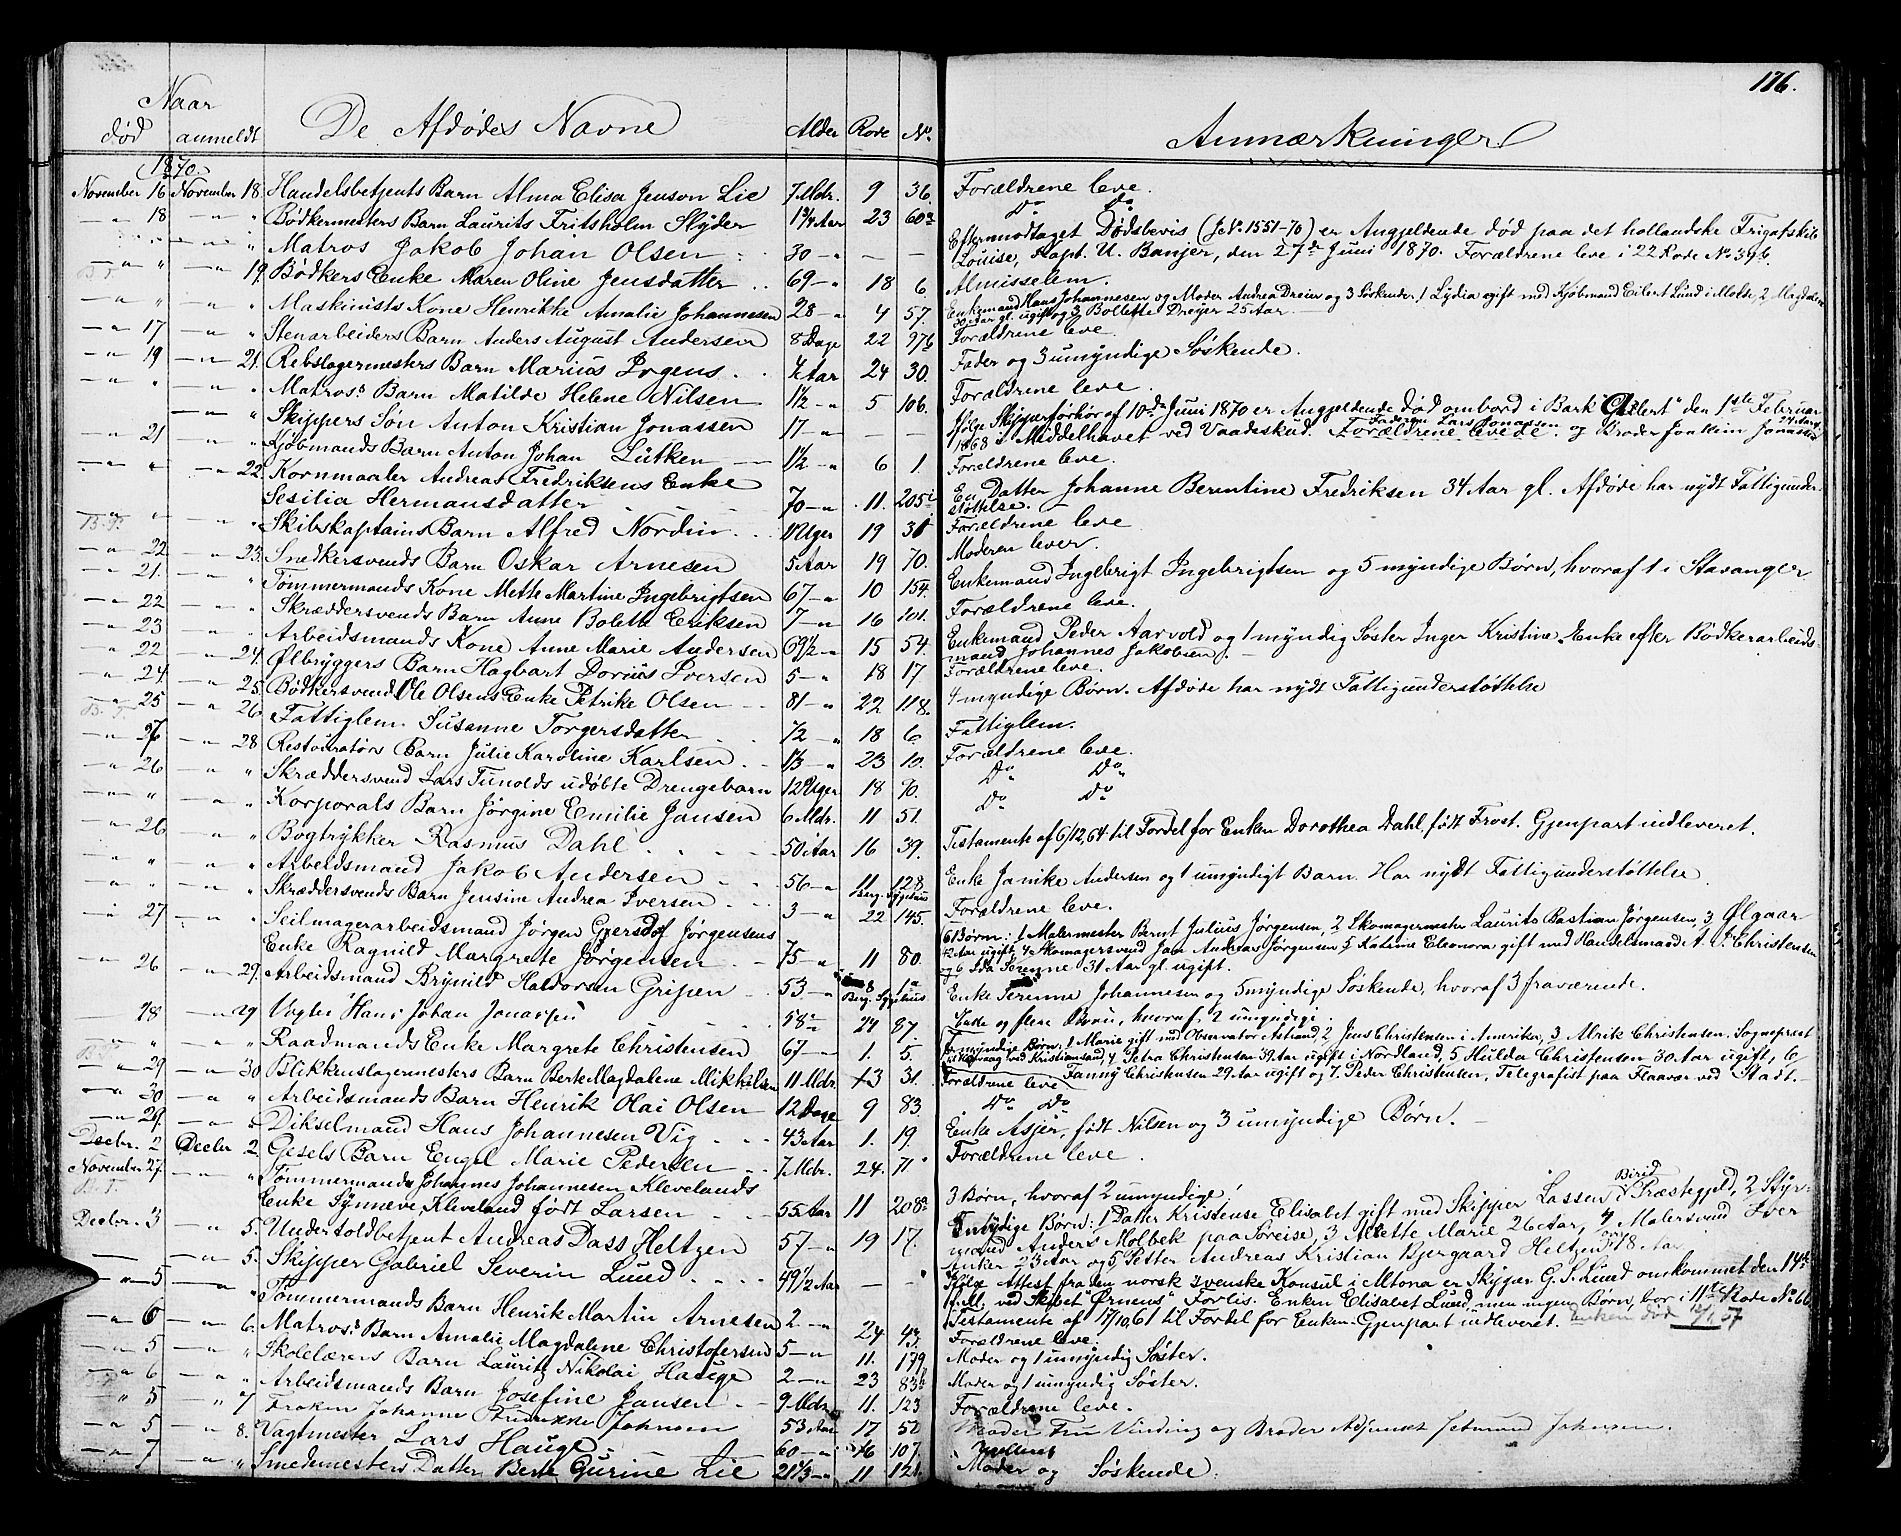 176.
Naar
død anmeldt De Afdødes Navne Alder Rode No. Anmærkninger
1870.
November 16 November 18. Handelsbetjents Barn Alma Elisa Jenson Lie 7 Mdr. 9 36. Forældrene leve.
— " 18 — " " Bødkermesters Barn Laurits Fritsholm Slyder 1 3/4 Aar 23 60a Do Do
— " " Matros Jakob Johan Olsen 30 — " — — Eftermodtaget Dødsbevis (Je No. 1551-70) er Angjeldende død paa det hollandske Frigatskib
Louise, Kapt. U. Banjer, den 27de Juni 1870. Forældrene leve i 22 Rode No 39b.
— " " — " 19. Bødkers Enke Maren Oline Jensdatter 69 — " 18 6 Almisselem.
— " " — " " Maskinists Kone Henrikke Amalie Johannesen 28 — " 4 57. Enkemand Hans Johannesen og Moder Andrea Dreier og 3 Søskende, 1 Lydia gift med Kjøbmand Eilert Lund i Molde, 2 Magdalene
30 Aar gl. ugift og 3 Bollette Dreyer 25 Aar.
— " 17 — " " Stenarbeiders Barn Anders August Andersen 8 Dage 22 97b Forældrene leve.
— " 19 — " 21. Rebslagermesters Barn Marius Irgens 4 Aar 24 30. Fader og 3 umyndige Søskende.
— " " — " " Matros's Barn Matilde Helene Nilsen 1 1/2 — " 5 106. Forældrene leve.
— " " Skippers Søn Anton Kristian Jonassen 17 — " — — Ifølge Skipperforhør af 10de Juni 1870 er Angjeldende død ombord i Bark "Eilert" den 1ste Februar
1868 i Middelhavet ved Vaadeskud. Forældrene levede og Broder Joakim Jonassen
— " 21 — " " Kjøbmands Barn Anton Johan Lütken 1 1/2 — " 6 1. Forældrene leve.
— " " — " 22. Kornmaaler Andreas Fredriksens Enke
Sesilia Hermansdatter 70 — " 11. 205 En Datter Johanne Berentine Fredriksen 34 Aar gl. Afdøde har nydt Fattigunder-
støttelse.
— " " — " " Skibskaptains Barn Alfred Nordin 11 Uger 19 31 Forældrene leve
— " 22 — " 23. Snedkersvends Barn Oskar Arnesen 5 Aar 19 70. Moderen lever.
— " 21. — " " Tømmermands Kone Mette Martine Ingebrigtsen 67 — " 10 154. Enkemand Ingebrigt Ingebrigtsen og 5 myndige Børn, hvoraf 1 i Stavanger
— " 22 — " " Skræddersvends Barn Anne Bolette Eriksen 7 — " 16 101. Forældrene leve.
— " 23 — " " Arbeidsmands Kone Anne Marie Andersen 69 1/2 — " 15 54. Enkemand Peder Aarvold og 1 myndig Søster Inger Kristine, Enke efter Bødkerarbeids-
mand Johannes Jakobsen.
— " 22 — " 24. Ølbryggers Barn Hagbart Dorius Iversen 5 — " 18 17 Forældrene leve.
— " 24 — " 25. Bødkersvend Ole Olsens Enke Petrike Olsen 81 — " 22 118. 4 myndige Børn. Afdøde har nydt Fattigunderstøttelse
— " 25 — " 26. Fattiglem Susanne Torgersdatter 72 — " 18 6. Fattiglem.
— " 26 — " 28. Restoiratørs Barn Julie Karoline Karlsen 1/3 — " 23 10. Forældrene leve.
— " 26 — " " Skræddersvend Lars Tunolds udøbte Drengebarn 12 Uger 18 90. Do Do
— " " — " " Korporals Barn Jørgine Emilie Jansen 6 Mdr. 11 51. Do Do
— " 26 — " " Bogtrykker Rasmus Dahl 50 Aar 16 39. Testamente af 6/12,64 til Fordel for Enken Dorothea Dahl, født Frost. Gjenpart indleveret.
— " " — " " Arbeidsmand Jakob Andersen 56 — " 11 128 Enke Janike Andersen og 1 umyndigt Barn. Har nydt Fattigunderstøttelse.
— " " — " " Skræddersvends Barn Jensine Andrea Iversen 3 — " 22 145. Forældrene leve.
— " 27 — " " Seilmagerarbeidsmand Jørgen Gjersdof Jørgensens
Enke Ragnild Margrete Jørgensen 75 — " 11 80. 6 Børn: 1 Malermester Bernt Julius Jørgensen, 2 Skomagermester Laurits Bastian Jørgensen, 3 Ølgaar
42 Aar ugift, 4 Skomagersvend Jan Andreas Jørgensen, 5 Katrine Eleonora gift med Handelsmand A. J. Christensen
og 6 Ida Serenne 31 Aar gl. ugift.
— " 26 — " 29. Arbeidsmand Brynild Haldorsen Gripen 53 — " 8 1a Berg. Sygehus Enke Serenne Johannesen og 5 myndige Søskende, hvoraf 3 fraværende.
— 28 — " 29 Vægter Hans Johan Jonassen 58 " 24 87. Enke og flere Børn, hvoraf 2 umyndige.
— " " — " " Raadmands Enke Margrete Christensen 67 — " 1. 5. 7 myndige Børn: 1 Marie gift med Observator Åstrand, 2 Jens Christensen i Amerika, 3 Ulrik Christensen, Sogneprest
ved Kristiansand, 4 Petra Christensen 39 Aar ugift i Nordland, 5 Hulda Christensen 30 Aar ugift, 6
Fanny Christensen 29 Aar ugift og 7. Peder Christensen, Telegrafist paa Flaavær ved Stadt.
— " 29 — " 30. Blikkenslagermesters Barn Berte Magdalene Mikkelsen 11 Mdr. 13 31. Forældrene leve
— " 30 — " " Arbeidsmands Barn Henrik Olai Olsen 12 Dage 9 83 Do Do
— " 29. — " " Dikselmand Hans Johannesen Vig 43 Aar 1. 19. Enke Asjer, født Nilsen og 3 umyndige Børn.
Decbr. 2 Decbr 2 Gesels Barn Engel Marie Pedersen 7 Mdr. 24. 71 Forældrene leve.
November 27. — " " Tømmermand Johannes Johannesen Klevelands
Enke Synneve Kleveland født Larsen 55 Aar 11 208 3 Børn, hvoraf 2 umyndige.
Decbr. 3 — " 5. Undertoldbetjent Andreas Dass Heltzen 57 — " 19 17. 5 myndige Børn: 1 Datter Kristense Elisabet gift med Skipper Lassen i Birid Præstegjeld, 2 Styr-
mand Anders Molbek paa Soreise, 3 Alette Marie 26 Aar, 4 Malersvend Iver
Anker 23 Aar og 5 Petter Andreas Kristian Bjergaard Heltzen 18 Aar
— — " 5. Skipper Gabriel Severin Lund 49 1/2 Aar — — Ifølge Attest fra den norsk svenske Konsul i Altona er Skipper G. S. Lund omkommet den 14de
f. M. ved Skibet "Ørnens" Forlis. Enken Elisabet Lund, men ingen Børn, bor i 11te Rode No 66.
Testamente af 17/10,61 til Fordel for Enken. Gjenpart indleveret. Enken død
— " 5 — " " Tømmermands Barn Henrik Martin Arnesen 2 — " 24 43. Forældrene leve.
— " 6 — " 6. Matros's Barn Amalie Magdalene Christofersen 5 — " 11. 179. Moder og 1 umyndig Søster.
— " 5 — " " Skolelærers Barn Lauritz Nikolai Hauge 2 — " 23 83 Moder og 1 umyndig Søster.
— " 6 — " " Arbeidsmands Barn Josefine Jansen 9 Mdr. 11. 123 Forældrene leve.
" 5 — " 7 Frøken Johanne Fredrikke Johnsen 53 Aar 17 50 Moder Fru Vinding og Broder Adjunkt Johnsen.
— " 5 — " 8. Vagtmester Lars Hauge 60 — " 16 107.
— " 7 — " " Smedemesters Datter Berte Gurine Lie 21 1/3 — " 11 121. Moder og Søskende.